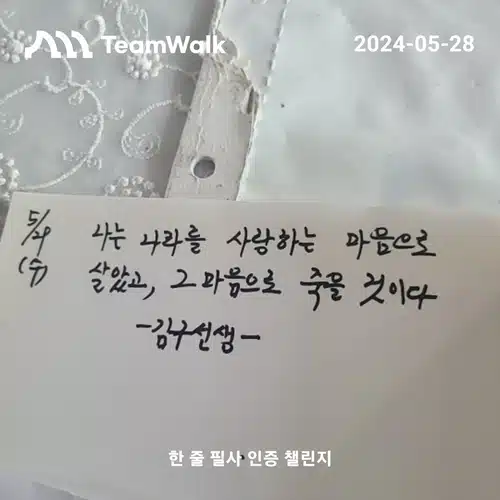 TeamWalk
2024-05-28
5/29 나는 나라를 사랑하는 마음으로
(수) 살았고, 그 마음으로 죽을 것이다
-김구선생-
한 줄 필사 인증 챌린지